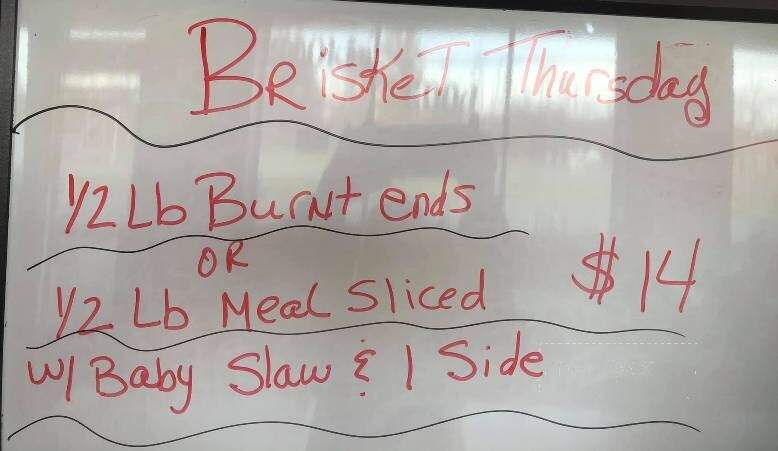 Brisket Thursday
1/2 Lb Burnt ends
OR
1/2 Lb Meal Sliced
$14
w/ Baby Slaw & 1 Side